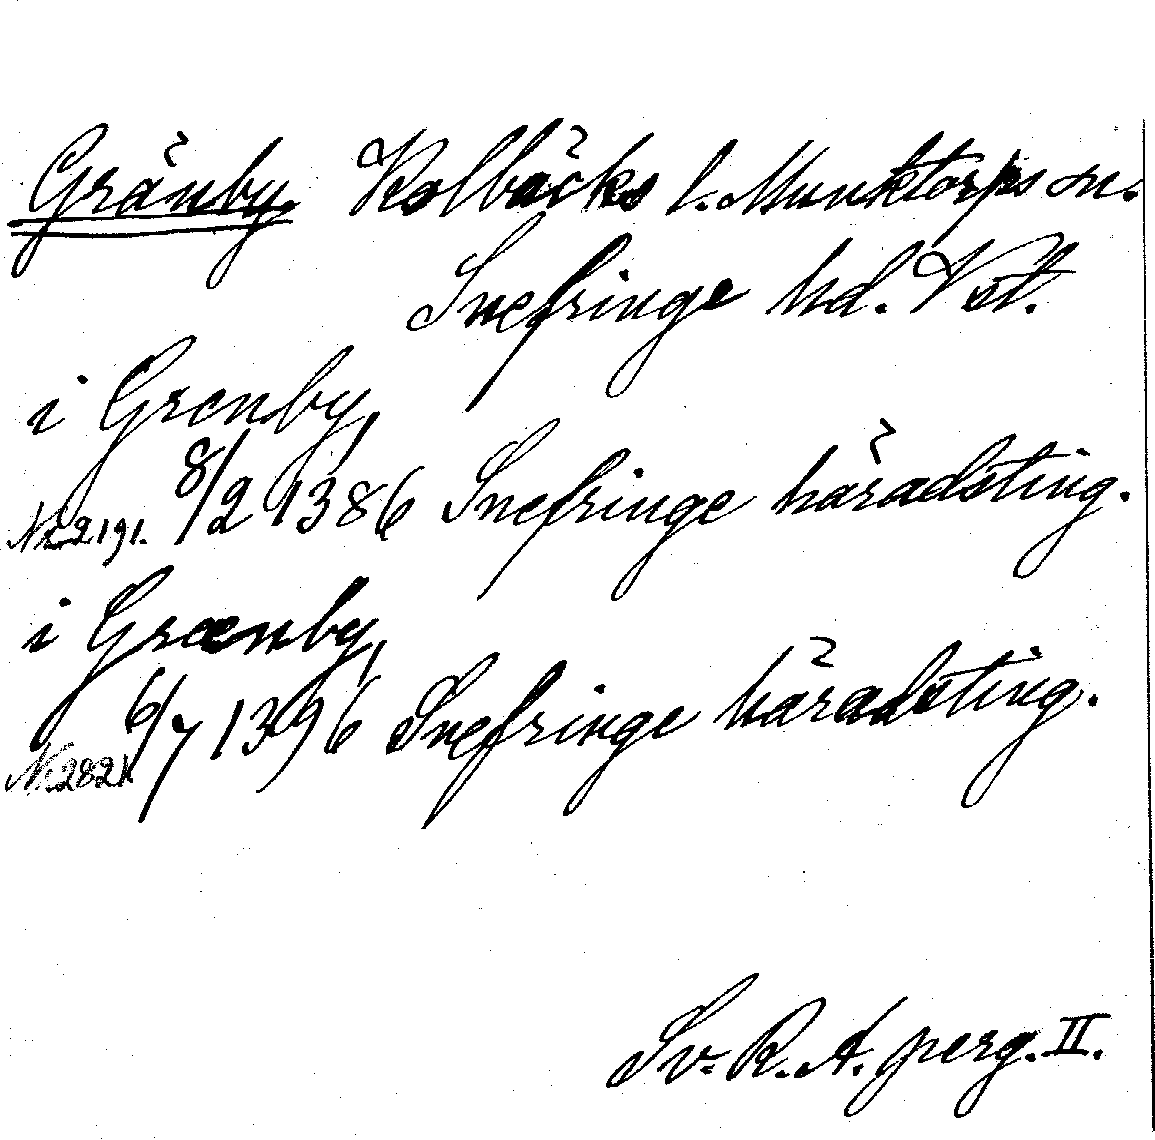 Gränby. Kolbäcks l. Munktorps sn.
Snefringe hd. Vstl.
i Grenby,
8/2 1386 Snefringe häradsting.
Nr. 2191.
i Grænby,
6/7 1396 Snefringe häradsting.
Nr. 2821.
Sv. R. A. perg. II.